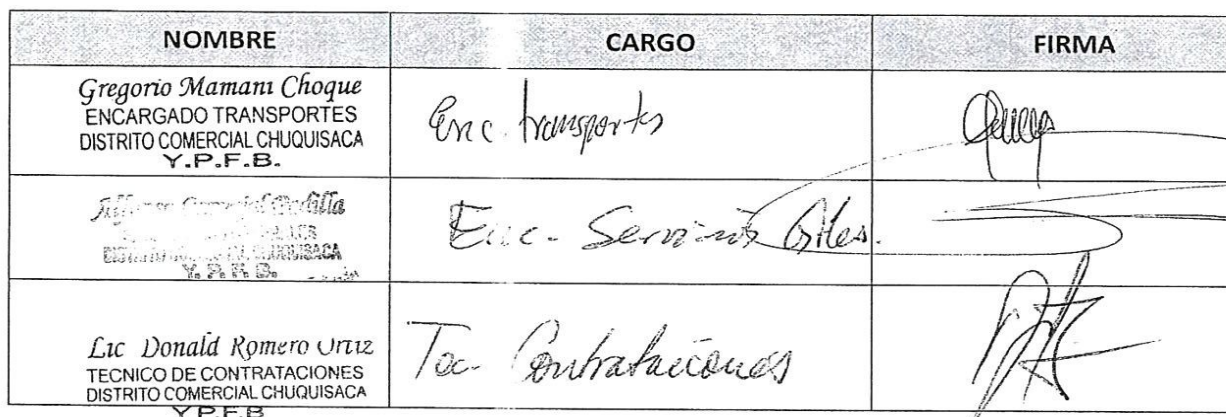 NOMBRE CARGO FIRMA
Gregorio Mamani Choque
ENCARGADO TRANSPORTES
DISTRITO COMERCIAL CHUQUISACA
Y.P.F.B.
Enc. transportes
Padilla
CHUQUISACA
Y. P. F. B.
Enc. Servicios Grles.
Lic Donald Romero Ortiz
TECNICO DE CONTRATACIONES
DISTRITO COMERCIAL CHUQUISACA
Y.P.F.B
Tec. Contrataciones